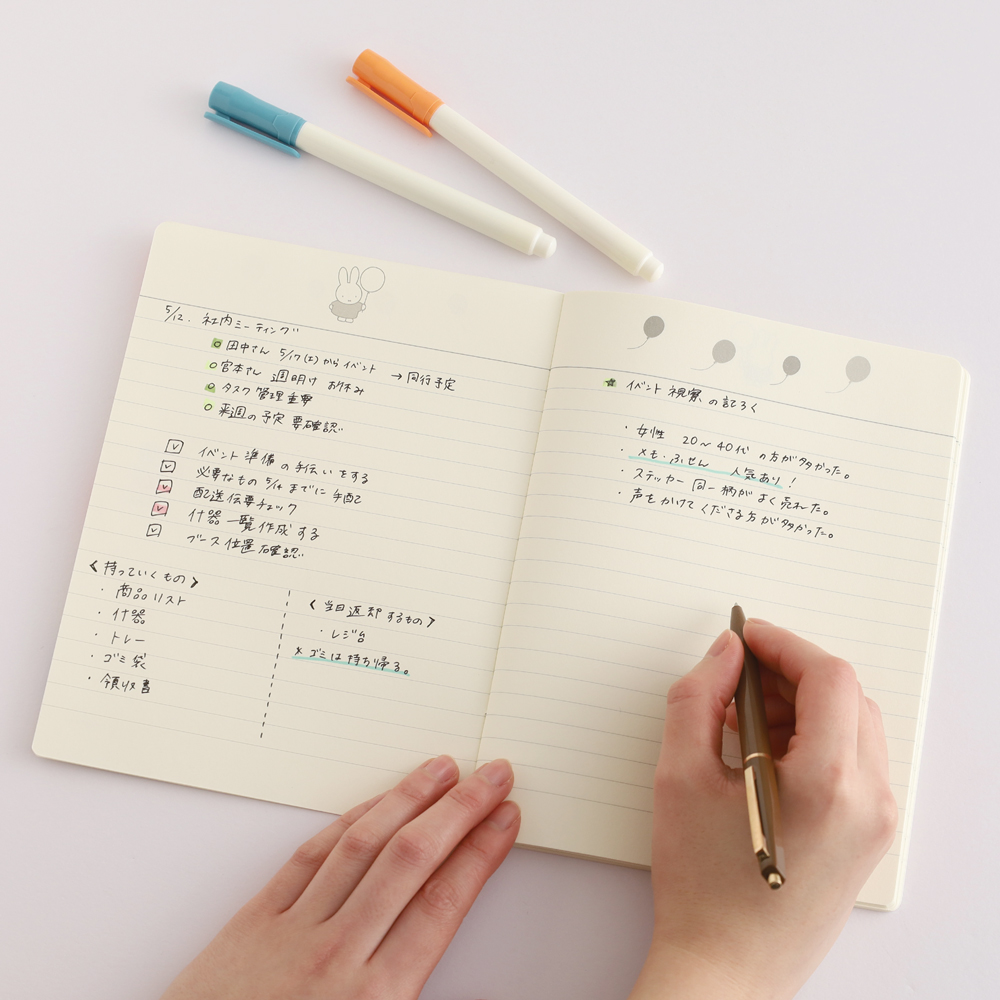 5/12. 社内ミーティング
田中さん 5/17(土)からイベント → 同行予定
宮本さん 週明け お休み
タスク管理重要
来週の予定 要確認
イベント準備の手伝いをする
必要なもの 5/14までに手配
配送伝票チェック
什器一覧作成する
ブース位置確認
〈持っていくもの〉
・商品リスト
・什器
・トレー
・ゴミ袋
・領収書
〈当日返却するもの〉
・レジ台
※ゴミは持ち帰る。
★ イベント視察の記ろく
・女性 20〜40代の方が多かった。
・メモ・ふせん 人気あり!
・ステッカー 同一柄がよく売れた。
・声をかけてくださる方が多かった。